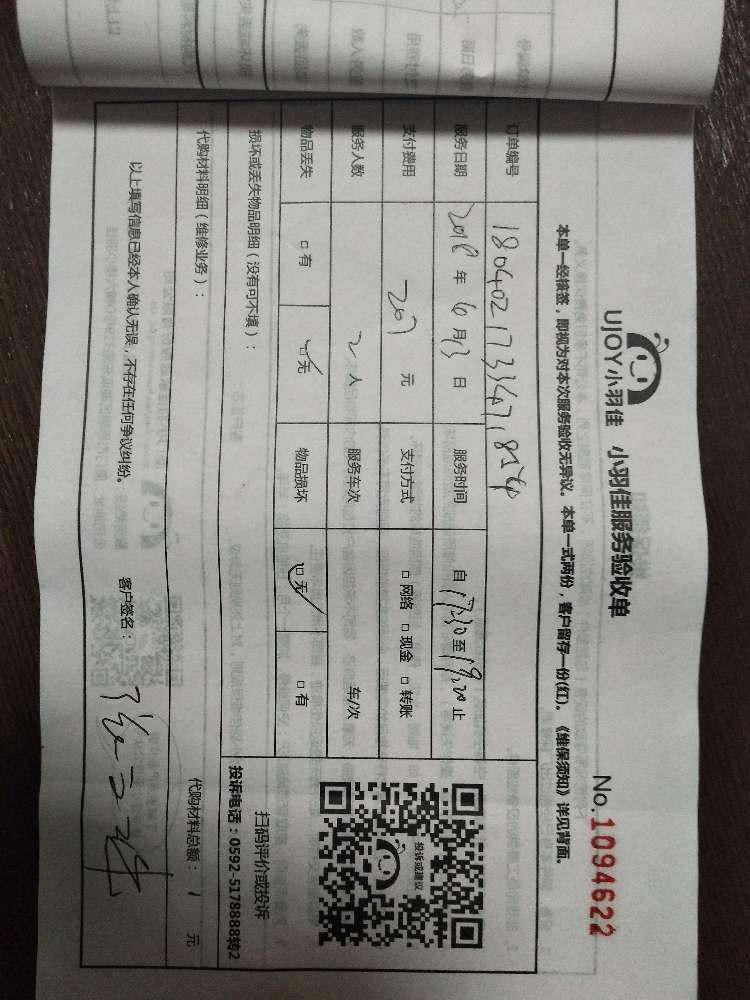 UJOY小羽佳 小羽佳服务验收单
No.1094622
本单一经核签，即视为对本次服务验收无异议。本单一式两份，客户留存一份(红)。《维保须知》详见背面。
订单编号
服务日期 2018 年 月 日 服务时间 自 17:30 至 19:20 止
支付费用 元 支付方式 □ 网络 □ 现金 □ 转账
服务人数 2 人 服务车次 车/次
物品丢失 □ 有 □ 无 物品损坏 □ 无 □ 有
投诉或建议
扫码评价或投诉
投诉电话：0592-5178888转2
损坏或丢失物品明细（没有可不填）：
代购材料明细（维修业务）： 代购材料总额： / 元
以上填写信息已经本人确认无误，不存在任何争议纠纷。 客户签名：